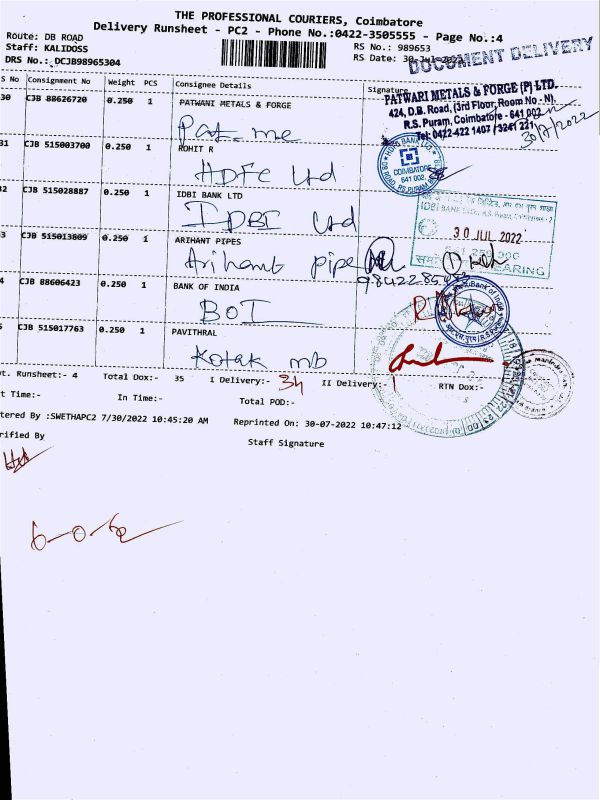 THE PROFESSIONAL COURIERS, Coimbatore
Delivery Runsheet - PC2 - Phone No.:0422-3505555 - Page No.:4
Route: DB ROAD
Staff: KALIDOSS
DRS No.: DCJB98965304
RS No.: 989653
RS Date: 30-Jul-2022
DOCUMENT DELIVERY
S No Consignment No Weight PCS Consignee Details Signature
30 CJB 88626720 0.250 1 PATWANI METALS & FORGE
Pat-me
PATWARI METALS & FORGE (P) LTD.
424, D.B. Road, (3rd Floor, Room No - N),
R.S. Puram, Coimbatore - 641 002
Tel: 0422-422 1407 / 3241 221
30/7/2022
31 CJB 515003700 0.250 1 ROHIT R
HDFC Ltd
COIMBATORE
641 002
2 CJB 515028887 0.250 1 IDBI BANK LTD
IDBI Ltd
30 JUL 2022
CLEARING
3 CJB 515013809 0.250 1 ARIHANT PIPES
Arihant pipe
4 CJB 88606423 0.250 1 BANK OF INDIA
BOI
Bank of India
5 CJB 515017763 0.250 1 PAVITHRAL
Kotak mb
t. Runsheet:- 4 Total Dox:- 35 I Delivery:- 34 II Delivery:- 1 RTN Dox:-
t Time:- In Time:- Total POD:-
tered By :SWETHAPC2 7/30/2022 10:45:20 AM Reprinted On: 30-07-2022 10:47:12
rified By Staff Signature